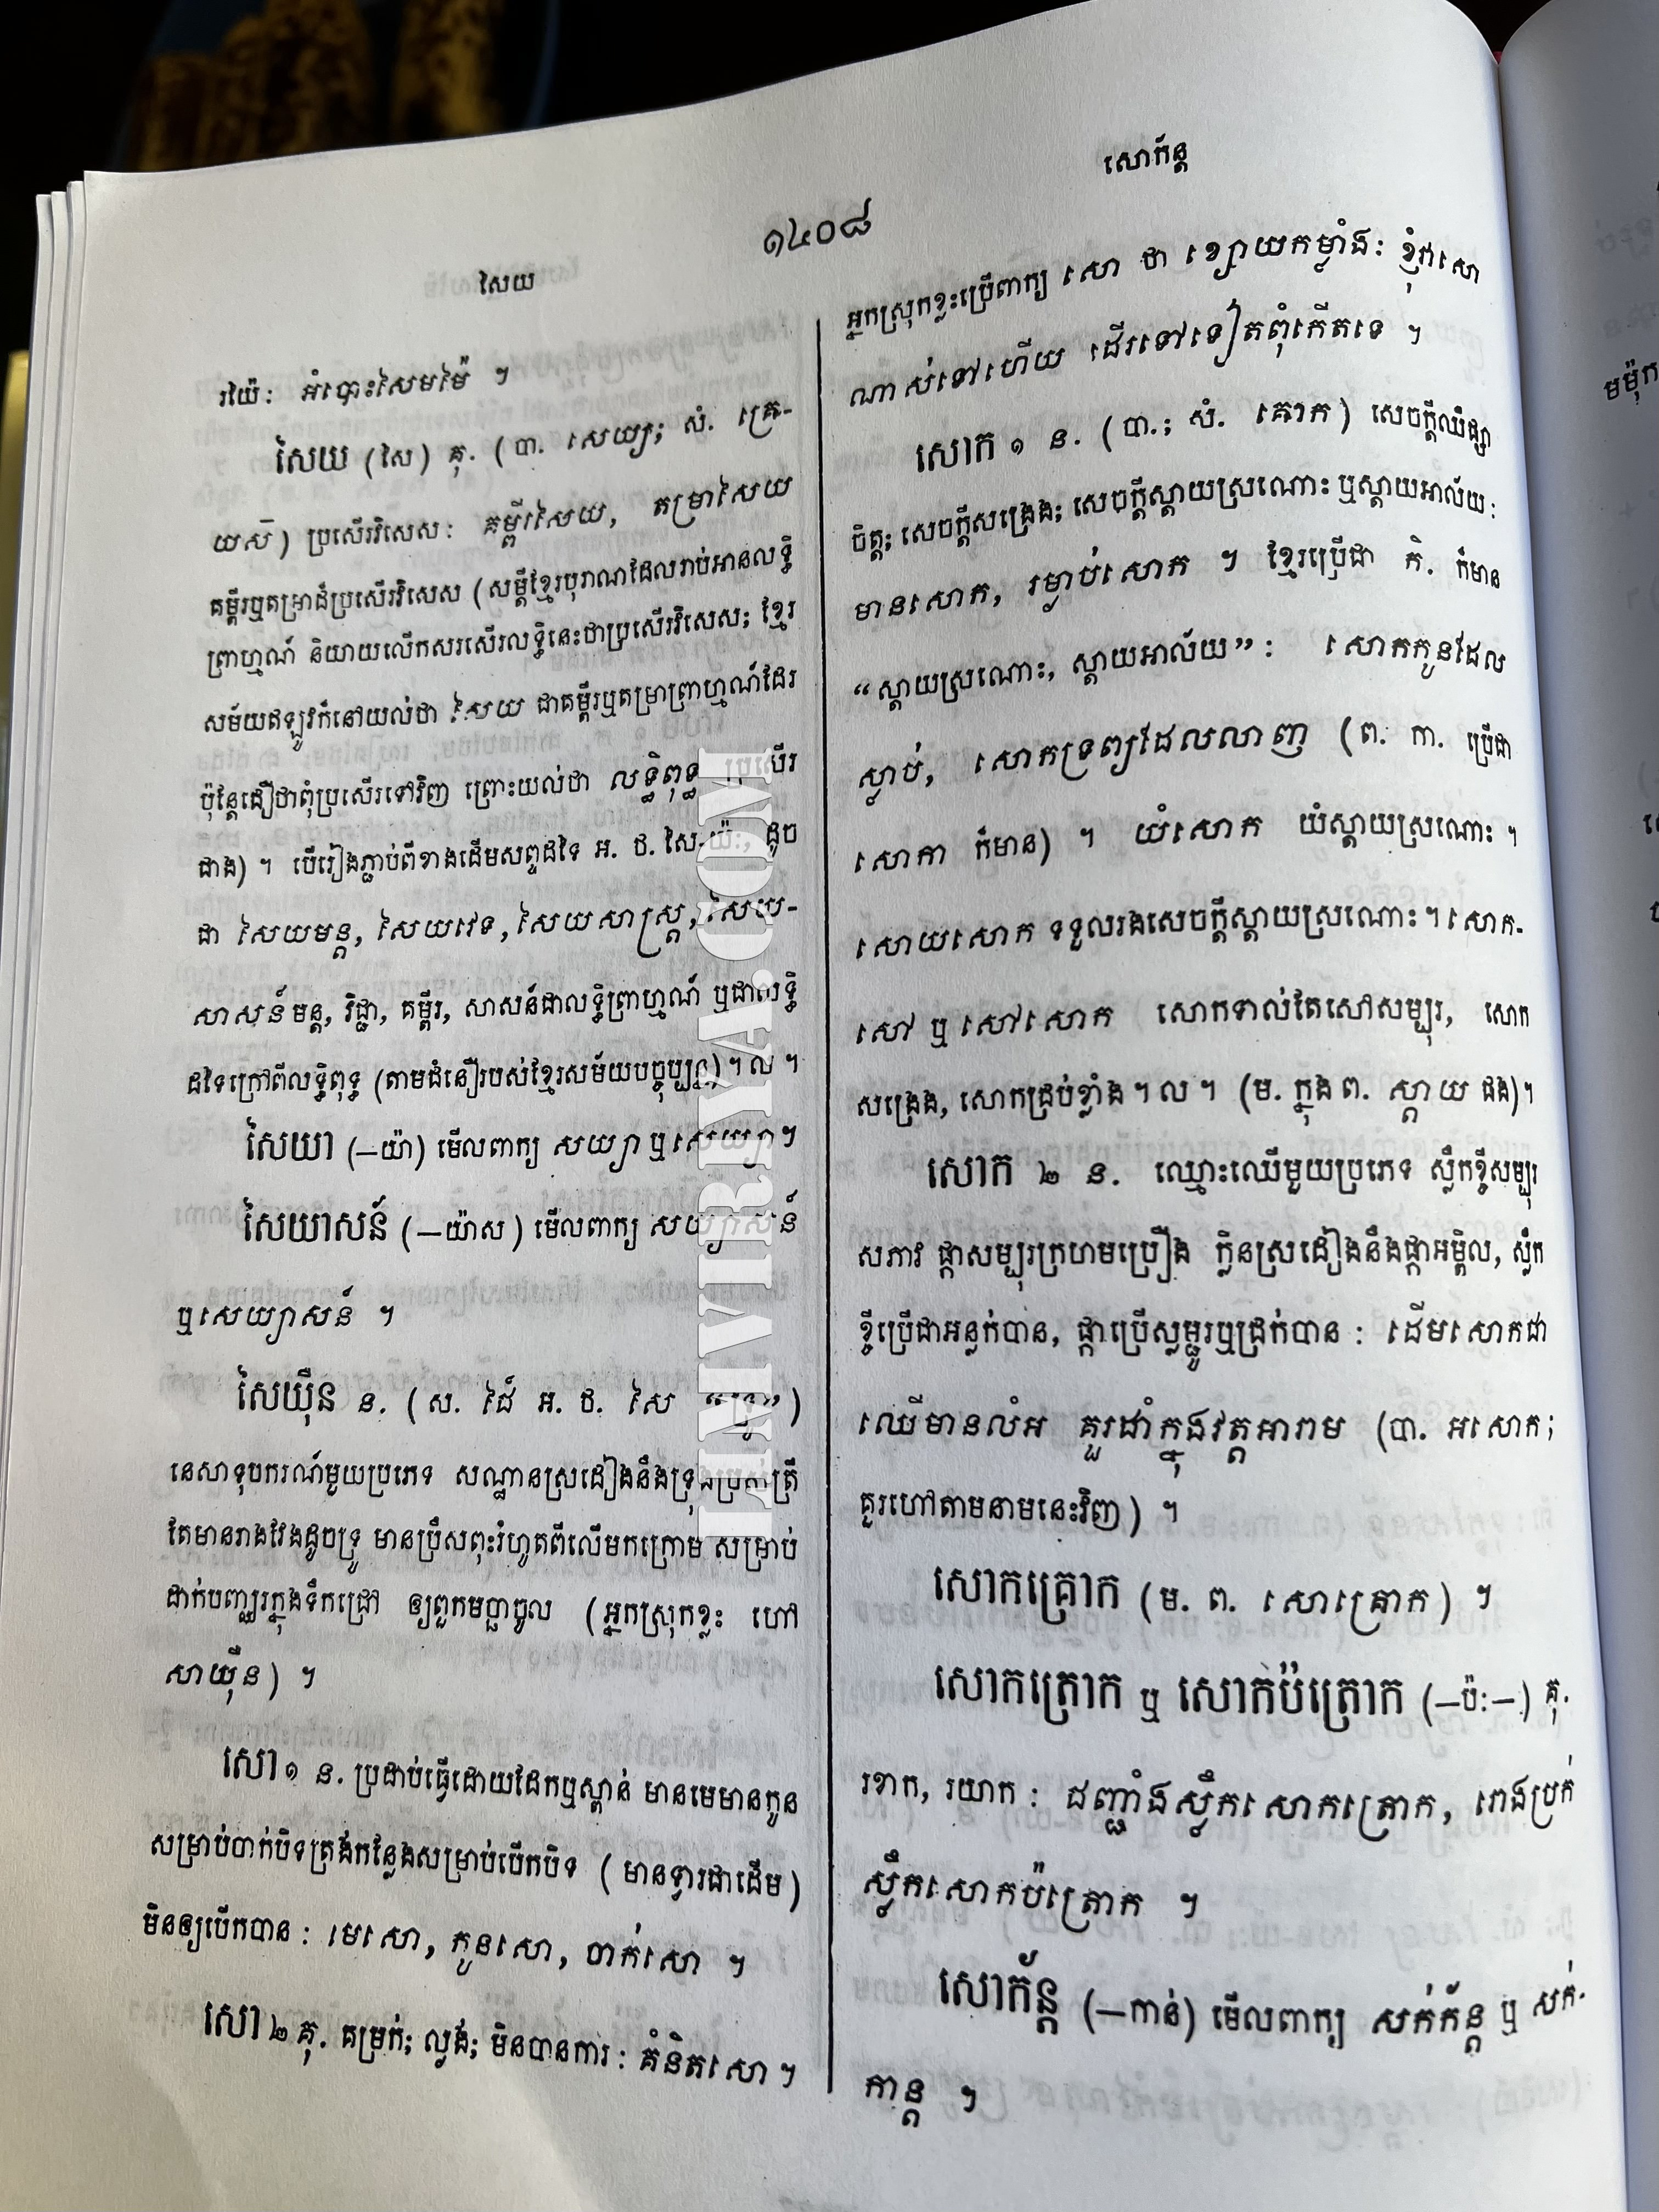 សោក័ន្ត
១៤០៨
សៃយ
រយ៉ៃ: អំបោះសៃមម៉ៃ ។
សៃយ (សៃ) គុ. (បា. សេយ្យ; សំ. គ្រេ-
យស៑) ប្រសើរវិសេស: គម្ពីរសៃយ, តម្រាសៃយ
គម្ពីរឬតម្រាដ៏ប្រសើរវិសេស (សម្ដីខ្មែរបុរាណដែលរាប់អានលទ្ធិ
ព្រាហ្មណ៍ និយាយលើកសរសើរលទ្ធិនេះថាប្រសើរវិសេស; ខ្មែរ
សម័យឥឡូវក៏នៅយល់ថា សៃយ ជាគម្ពីរឬតម្រាព្រាហ្មណ៍ដែរ
ប៉ុន្តែជឿថាពុំប្រសើរទៅវិញ ព្រោះយល់ថា លទ្ធិពុទ្ធ ប្រសើរ
ជាង) ។ បើរៀងភ្ជាប់ពីខាងដើមសព្ទដទៃ អ. ថ. សៃ-យ៉ៈ, ដូច
ជា សៃយមន្ត, សៃយវេទ, សៃយសាស្ត្រ, សៃយ-
សាសន៍ មន្ត, វិជ្ជា, គម្ពីរ, សាសន៍ជាលទ្ធិព្រាហ្មណ៍ ឬជាលទ្ធិ
ដទៃក្រៅពីលទ្ធិពុទ្ធ (តាមជំនឿរបស់ខ្មែរសម័យបច្ចុប្បន្ន) ។ ល ។
សៃយា (—យ៉ា) មើលពាក្យ សយ្យា ឬ សេយ្យា ។
សៃយាសន៍ (—យ៉ាស) មើលពាក្យ សយ្យាសន៍
ឬ សេយ្យាសន៍ ។
សៃយ៉ឺន ន. (ស. ដៃ អ. ថ. សៃ "ទ្រូ")
នេសាទុបករណ៍មួយប្រភេទ សណ្ឋានស្រដៀងនឹងទ្រុងប្រសត្រី
តែមានរាងវែងដូចទ្រូ មានប្រឹសពុះរំហូតពីលើមកក្រោម សម្រាប់
ដាក់បញ្ឈរក្នុងទឹកជ្រៅ ឲ្យពួកមច្ឆាចូល (អ្នកស្រុកខ្លះ ហៅ
សាយ៉ឺន) ។
សោ ១ ន. ប្រដាប់ធ្វើដោយដែកឬស្ពាន់ មានមេមានកូន
សម្រាប់ចាក់បិទត្រង់កន្លែងសម្រាប់បើកបិទ (មានទ្វារជាដើម)
មិនឲ្យបើកបាន : មេសោ, កូនសោ, ចាក់សោ ។
សោ ២ គុ. គម្រក់; ល្ងង់; មិនបានការ : គំនិតសោ ។
អ្នកស្រុកខ្លះប្រើពាក្យ សោ ថា ខ្សោយកម្លាំង: ខ្ញុំវាសោ
ណាស់ទៅហើយ ដើរទៅទៀតពុំកើតទេ ។
សោក ១ ន. (បា.; សំ. គោក) សេចក្ដីឈឺផ្សា
ចិត្ត; សេចក្ដីសង្រេង; សេចក្ដីស្ដាយស្រណោះ ឬស្ដាយអាល័យ:
មានសោក, រម្ងាប់សោក ។ ខ្មែរប្រើជា កិ. ក៏មាន
“ស្ដាយស្រណោះ, ស្ដាយអាល័យ” : សោកកូនដែល
ស្លាប់, សោកទ្រព្យដែលលាញ (ព. កា. ប្រើជា
សោកា ក៏មាន) ។ យំសោក យំស្ដាយស្រណោះ ។
សោយសោក ទទួលរងសេចក្ដីស្ដាយស្រណោះ ។ សោក-
សៅ ឬ សៅសោក សោកទាល់តែសៅសម្បុរ, សោក
សង្រេង, សោកជ្រប់ខ្លាំង ។ ល ។ (ម. ក្នុង ព. ស្ដាយ ផង) ។
សោក ២ ន. ឈ្មោះឈើមួយប្រភេទ ស្លឹកខ្ចីសម្បុរ
សភាវ ផ្កាសម្បុរក្រហមប្រឿង ក្លិនស្រដៀងនឹងផ្កាអម្ពិល, ស្លឹក
ខ្ចីប្រើជាអន្លក់បាន, ផ្កាប្រើស្លម្ជូរឬជ្រក់បាន : ដើមសោកជា
ឈើមានលំអ គួរដាំក្នុងវត្តអារាម (បា. អសោក;
គួរហៅតាមនាមនេះវិញ) ។
សោកគ្រោក (ម. ព. សោគ្រោក) ។
សោកត្រោក ឬ សោកប៉ត្រោក (—ប៉ៈ—) គុ.
រខាក, រយាក : ជញ្ជាំងស្លឹកសោកត្រោក, រោងប្រក់
ស្លឹកសោកប៉ត្រោក ។
សោក័ន្ត (—កាន់) មើលពាក្យ សក់ក័ន្ត ឬ សក់-
កាន្ត ។
LINVIRIYA.COM